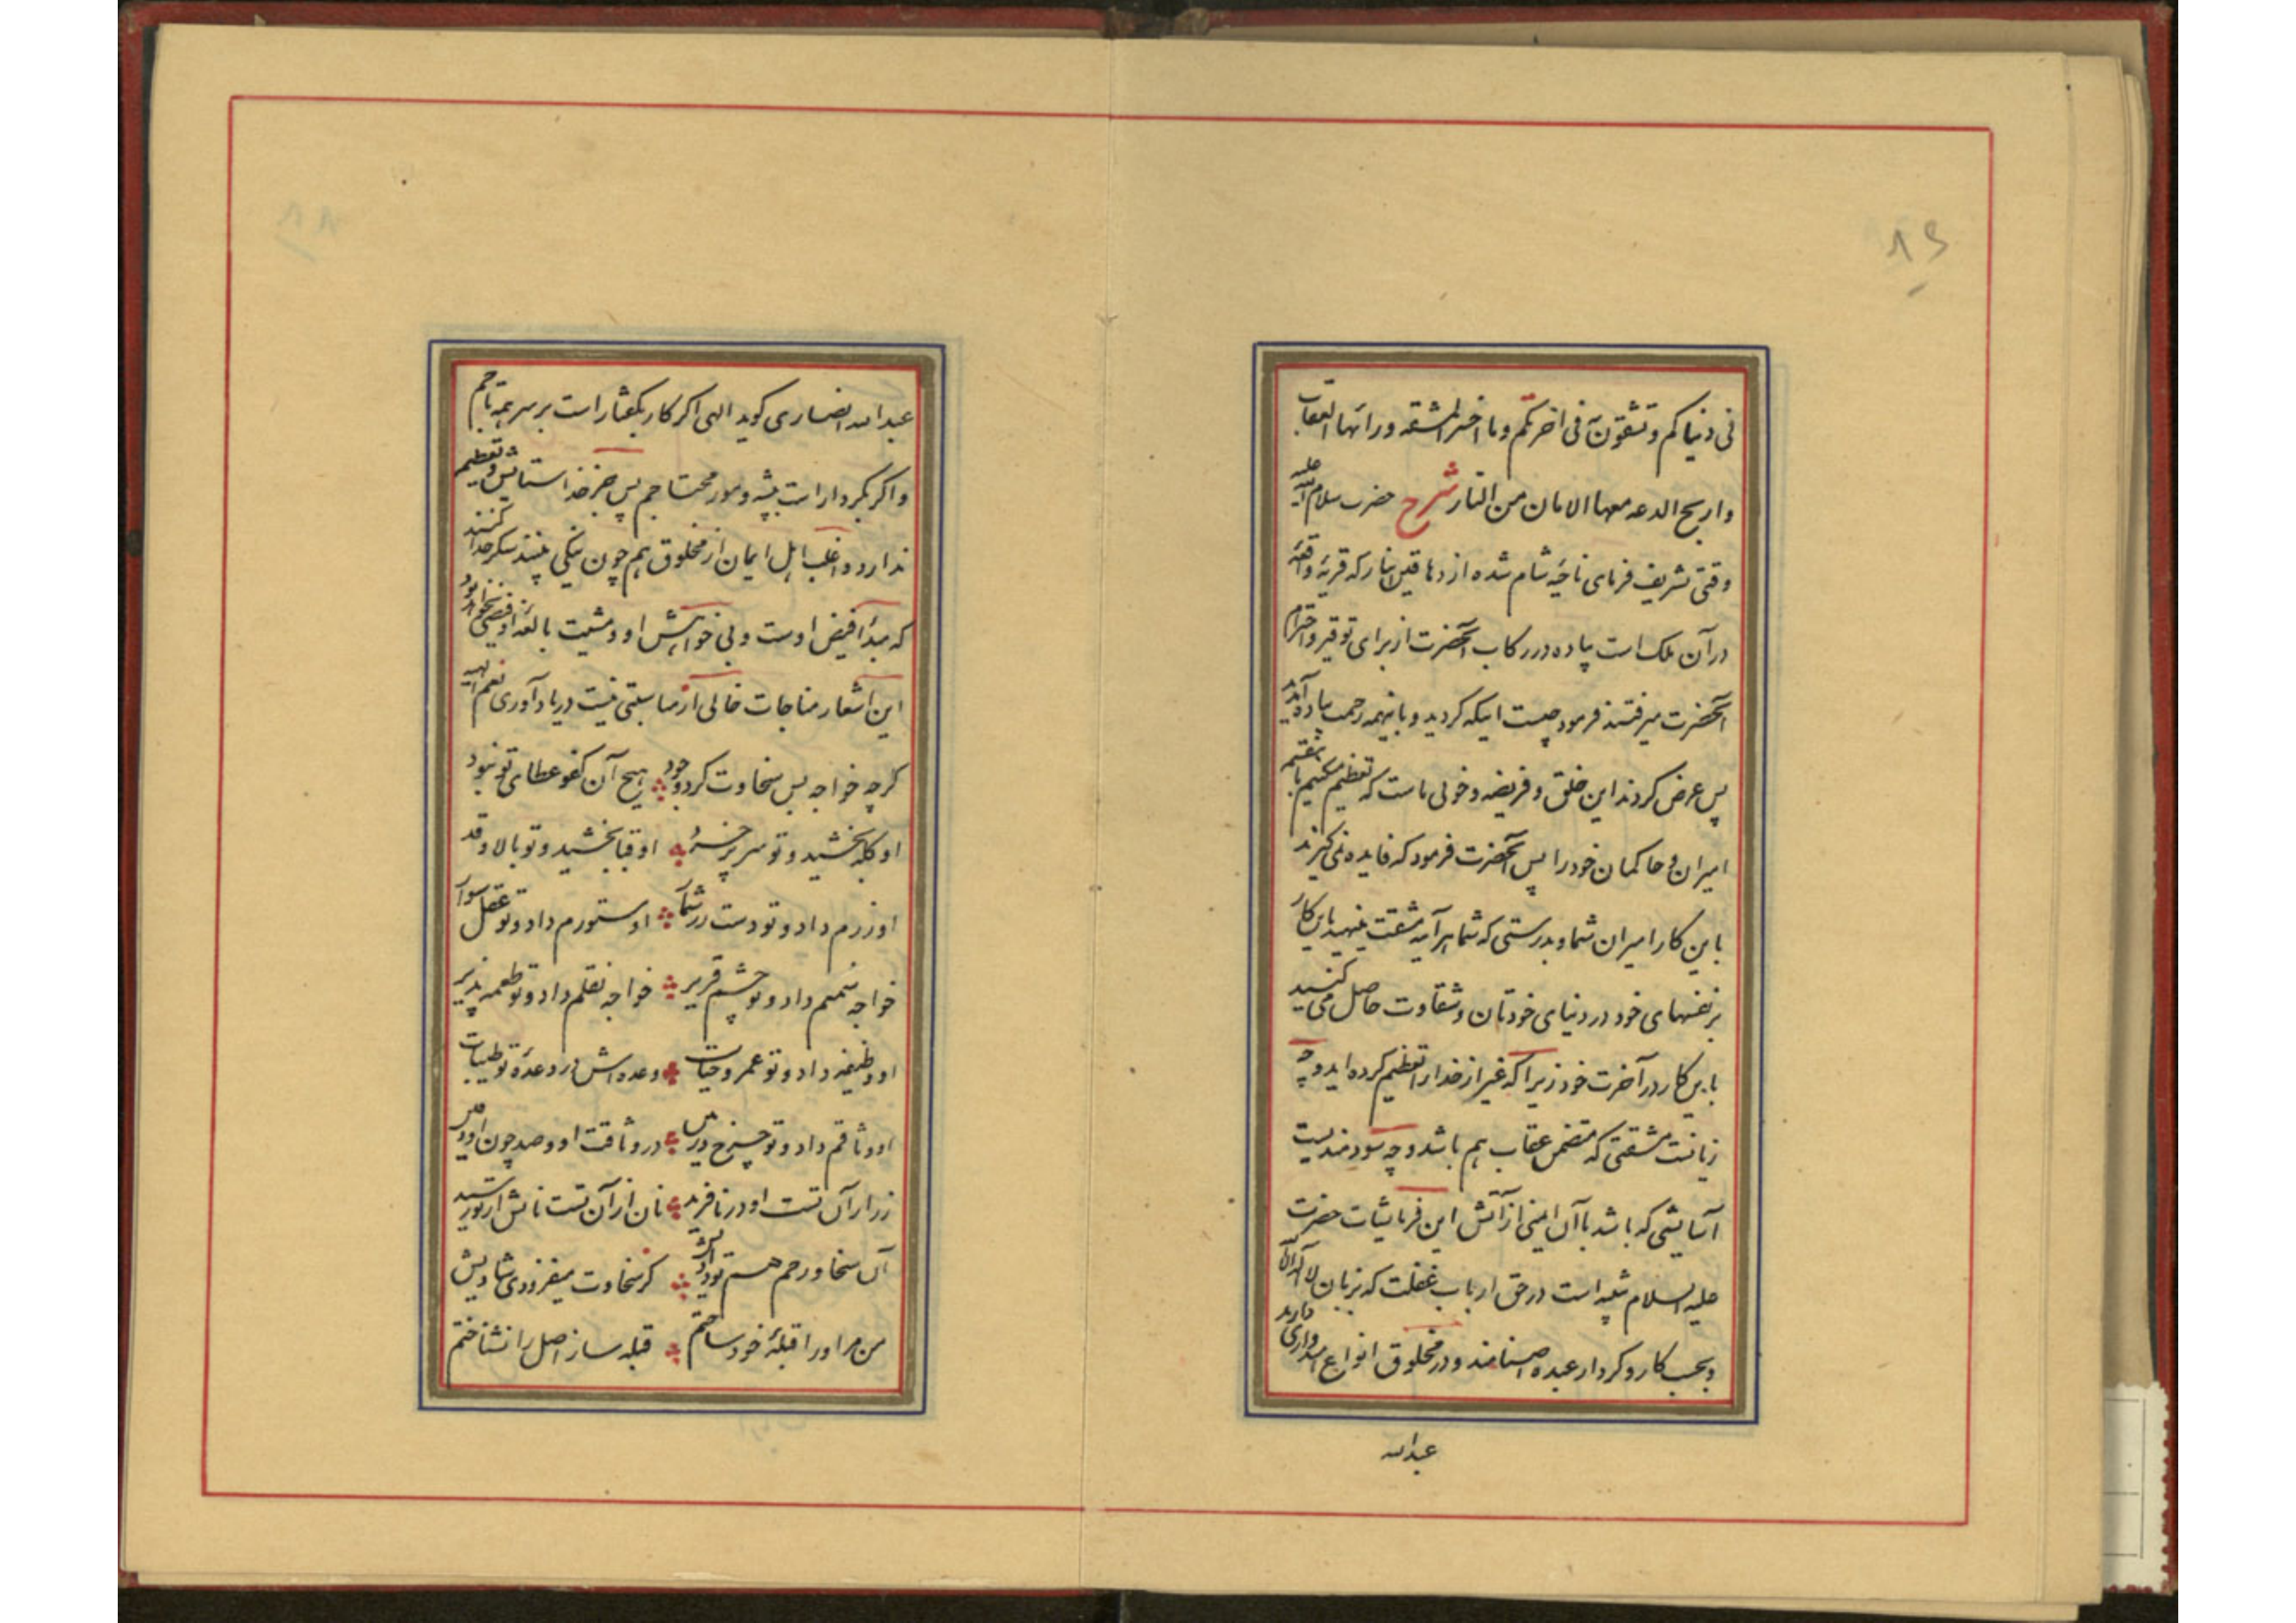 ۸۹
فی دنیاکم و تشقون فی اخرتکم و ما اخسر المشقه ورائها العقاب
و اربح الدعه معها الامان من النار شرح حضرت سلام الله علیه
وقتی تشریف فرمای ناحیهٔ شام شده از دهاقین انبار که قریهٔ واقعه
در آن ملک است پیاده در رکاب آنحضرت از برای توقیر و احترام
آنحضرت میرفتند فرمود چیست اینکه کردید و باینهمه زحمت پیاده آمدید
پس عرض کردند این خلق و فریضه و خوی ماست که تعظیم میکنیم با
امیران و حاکمان خود را پس آنحضرت فرمود که فایده نمی گیرند
باین کار امیران شما و بدرستی که شما هر آینه مشقت مینهید باین کار
بر نفسهای خود در دنیای خودتان و شقاوت حاصل می کنید
باین کار در آخرت خود زیرا که غیر از خدا را تعظیم کرده اید و چه
زیانست مشقتی که متضمن عقاب هم باشد و چه سودمندیست
آسایشی که باشد با آن ایمنی از آتش این فرمایشات حضرت
علیه السلام تنبیه است در حق ارباب غفلت که بزبان لا اله الا الله
و بحسب کار و کردار عبده اصنامند و در مخلوق انواع امیدواری دارند
عبدالله
۸۸
عبدالله انصاری گوید الهی اگر کار بگفتار است بر سر همه تاجم
و اگر بکردار است به پشه و مور محتاجم پس جز خدا ستایش و تعظیم
ندارد و اغلب اهل ایمان از مخلوق هم چون نیکی بینند شکر خدا کنند
که مبدأ فیض اوست و بی خواهش او و مشیت بالغهٔ او فیضی نخواهد بود
این اشعار مناجات خالی از مناسبتی نیست در یادآوری نعم الهیه
گرچه خواجه بس سخاوت کرد و جود هیچ آن کفو عطای تو نبود
او کله بخشید و تو سر پر خرد او قبا بخشید و تو بالا و قد
او زرم داد و تو دست زر شمار او ستورم داد و تو عقل سوار
خواجه شمعم داد و تو چشم قریر خواجه نقلم داد و تو طعمه پذیر
او وظیفه داد و تو عمر و حیات وعده اش زر وعدهٔ تو طیبات
او وثاقم داد و تو چرخ و زمین در وثاقت او و صد چون او دفین
زر از آن تست او زر نافرید نان از آن تست نانش از تو رسید
آن سخا و رحم هم تو دادیش کز سخاوت میفزودی شادیش
من مر او را قبلهٔ خود ساختم قبله ساز اصل را نشناختم